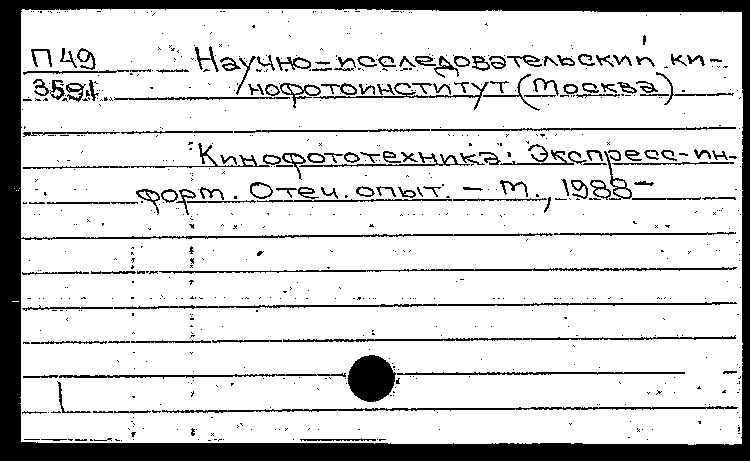 П 49 Научно-исследовательский ки-
3591 нофотоинститут (Москва).
Кинофототехника: Экспресс-ин-
форм. Отеч. опыт. – М., 1988–